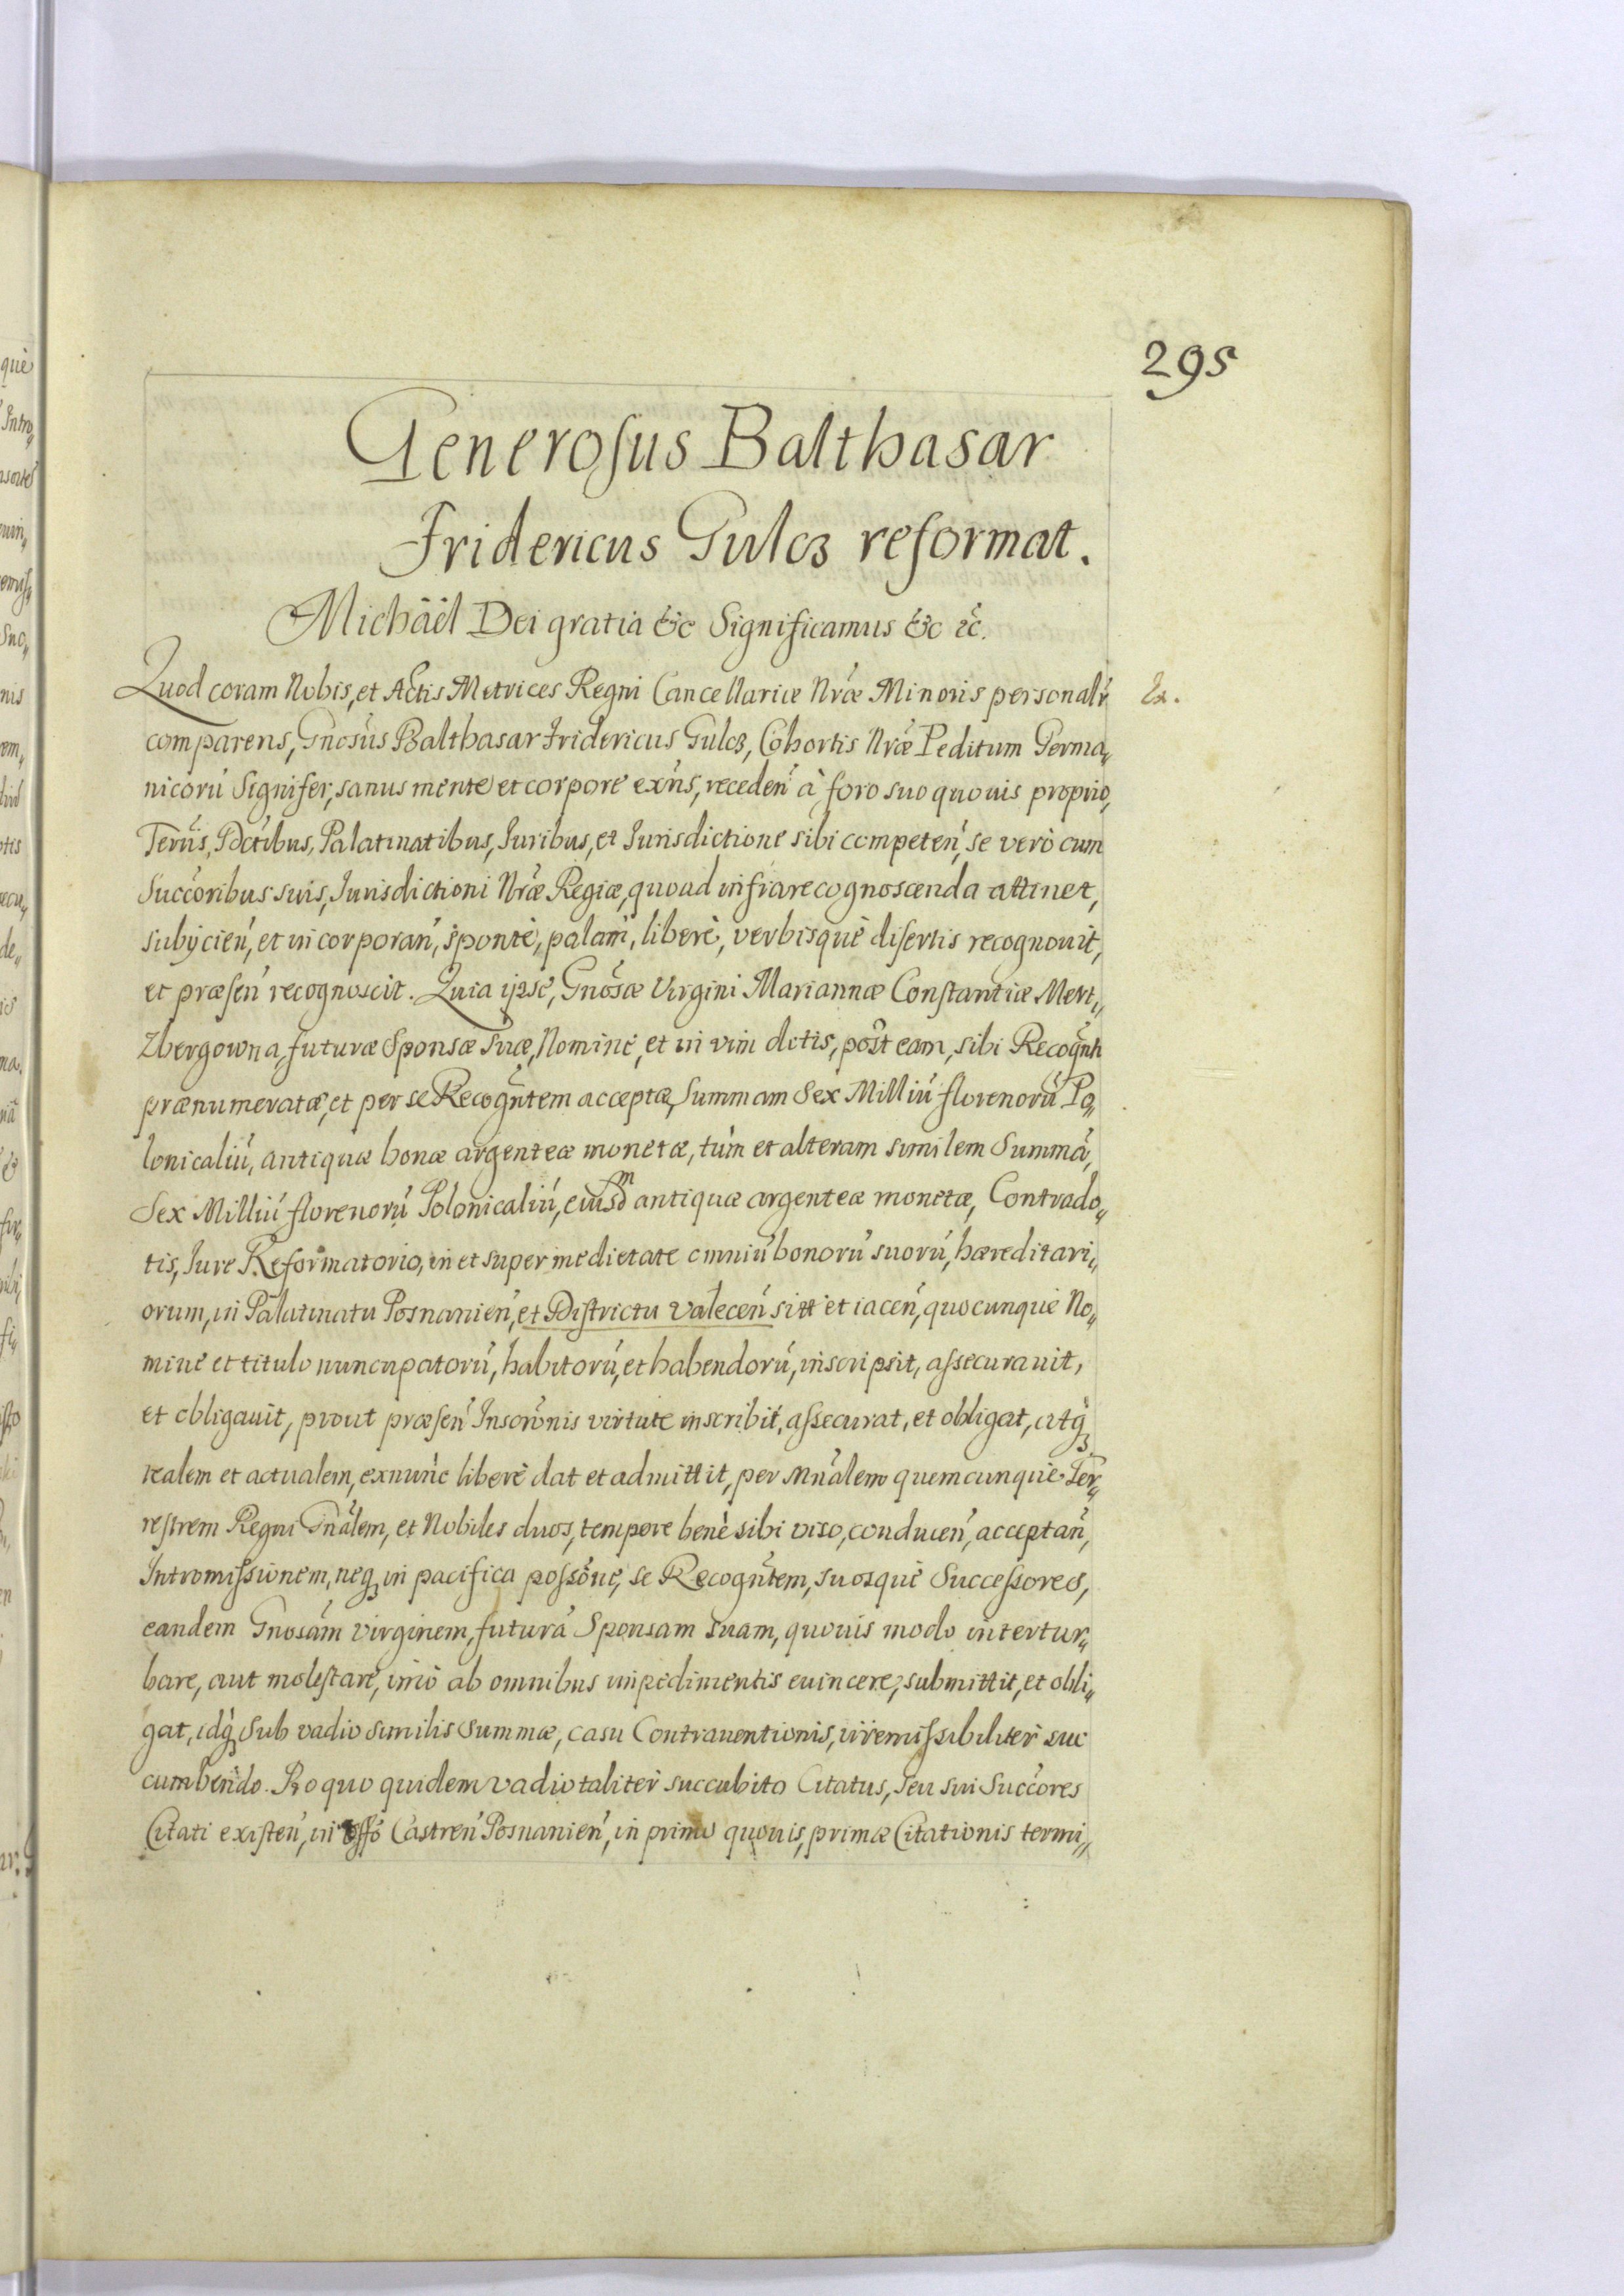 295
Generosus Balthasar
Fridericus Gulcz reformat.
Michäël Dei gratia &c Significamus &c &c.
Quod coram Nobis, et Actis Metrices Regni Cancellariæ Nr̃æ Minoris personalr̃
comparens, Gnosũs Balthasar Fridericus Gulcz, Cohortis Nr̃æ Peditum Germa„
nicorũ Signifer, sanus mente et corpore exñs, recedeñ à foro suo quouis proprio,
Terris, Dctibus, Palatinatibus, Iuribus, et Iurisdictione sibi competeñ, se verò cum
Succõribus suis, Iurisdictioni Nr̃æ Regiæ, quoad infra recognoscenda attinet,
subijcieñ, et incorporañ, sponte, palam, libere, verbisque disertis recognouit,
et præseñ recognoscit. Quia ipse, Gnõsæ Virgini Mariannæ Constantiæ Mert„
zbergowna, futuræ Sponsæ Suæ, Nomine, et in vim dotis, post eam, sibi Recogñti
prænumeratæ, et per se Recogñtem acceptæ, Summam Sex Milliũ florenorũ Po„
lonicaliũ, antiquæ bonæ argenteæ monetæ, tùm et alteram similem Summã,
Sex Milliũ florenorũ Polonicaliũ, eiusdm antiquæ argenteæ monetæ, Contrado„
tis, Iure Reformatorio, in et super medietate omniũ bonorũ suorũ, hæreditari„
orum, in Palatinatu Posnanieñ, et Districtu Valeceñ sitt et iaceñ, quocunque No„
mine et titulo nuncupatorũ, habitorũ, et habendorũ, inscripsit, assecurauit,
et obligauit, prout præseñ Inscrõnis virtute inscribit, assecurat, et obligat, atq́ꝫ
realem et actualem, exnunc liberè dat et admittit, per Mñalem quemcunque Ter„
restrem Regni Gñalem, et Nobiles duos, tempore benè sibi viso, conduceñ, acceptañ,
Intromissionem, neqꝫ in pacifica possõne, se Recogñtem, suosque Successores,
eandem Gnosãm Virginem, futurã Sponsam suam, quouis modo intertur„
bare, aut molestare, imò ab omnibus impedimentis euincere, submittit, et obli„
gat, idq́ꝫ sub vadio similis Summæ, casu Contrauentionis, irremissibiliter suc
cumbendo. Pro quo quidem vadio taliter succubito Citatus, seu sui Succõres
Citati existeñ, in Offõ Castreñ Posnanieñ, in primo quouis, primæ Citationis termi„